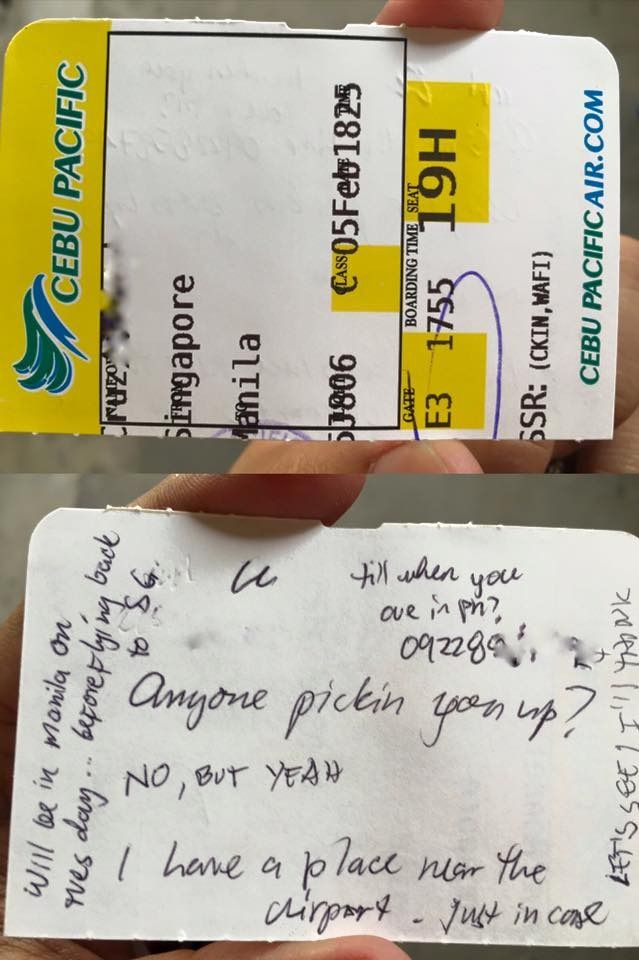 CEBU PACIFIC
Singapore
Manila
CLASS
C 05Feb1825
BOARDING TIME SEAT
19H
GATE
E3 1755
SSR: (CKIN,WAFI)
CEBU PACIFICAIR.COM
till when you
are in PH?
092289
Anyone pickin you up?
NO, BUT YEAH
I have a place near the
airport. Just in case
Will be in manila on
Tues day... before flying back
to SG.
LET'S SEE! I'll YANK